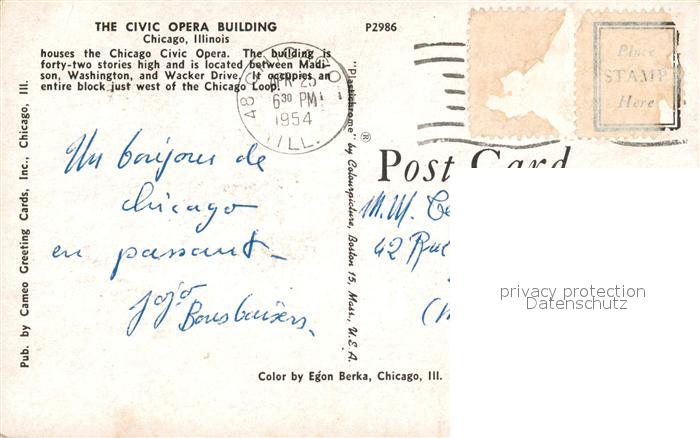 THE CIVIC OPERA BUILDING
Chicago, Illinois
houses the Chicago Civic Opera. The building is
forty-two stories high and is located between Madi-
son, Washington, and Wacker Drive. It occupies an
entire block just west of the Chicago Loop.
P2986
6 30 PM
1954
ILL.
Place
STAMP
Here
Post Card
Un bonjour de
Chicago
en passant -
Jojo
Bons baisers.
M. M.
42 Rue
Pub. by Cameo Greeting Cards, Inc., Chicago, Ill.
"Plastichrome"® by Colourpicture, Boston 15, Mass., U.S.A.
Color by Egon Berka, Chicago, Ill.
privacy protection
Datenschutz